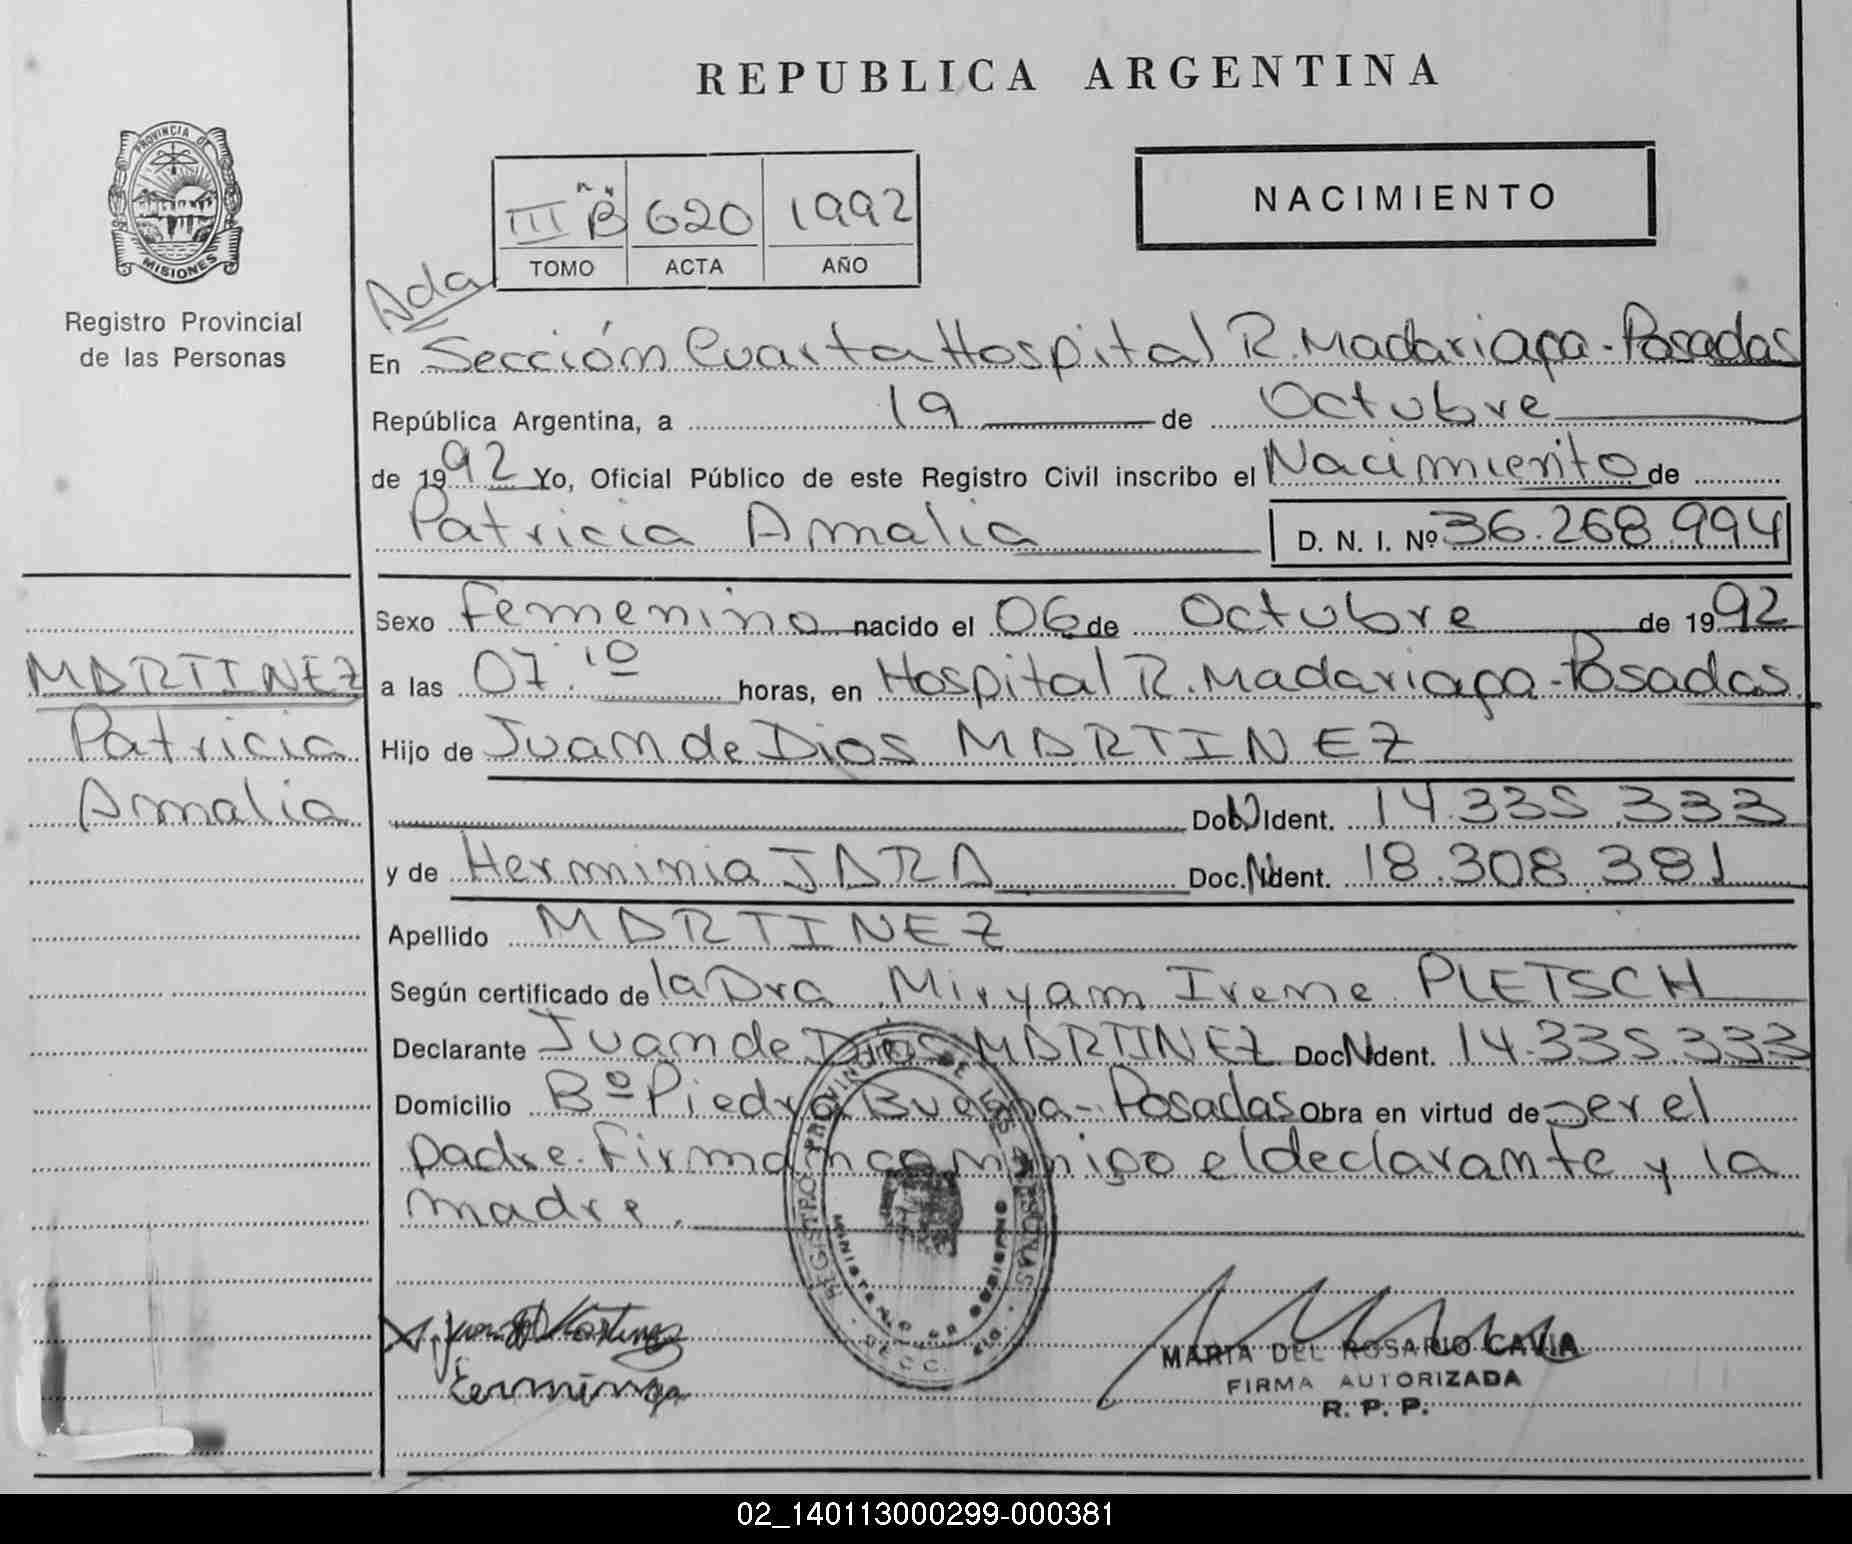 REPUBLICA ARGENTINA
PROVINCIA DE
MISIONES
Registro Provincial
de las Personas
III "B" 620 1992
TOMO ACTA AÑO
NACIMIENTO
Ada
En Sección Cuarta Hospital R. Madariaga - Posadas
República Argentina, a 19 de Octubre
de 1992 Yo, Oficial Público de este Registro Civil inscribo el Nacimiento de
Patricia Amalia D. N. I. Nº 36.268.994
Sexo femenino nacido el 06 de Octubre de 1992
a las 07:10 horas, en Hospital R. Madariaga - Posadas.
Hijo de Juan de Dios MARTINEZ
Doc. Ident. 14.335.333
y de Herminia JARA Doc. Ident. 18.308.381
Apellido MARTINEZ
Según certificado de la Dra Miryam Irene PLETSCH
Declarante Juan de Dios MARTINEZ Doc Ident. 14.335.333
Domicilio Bº Piedra Buena - Posadas Obra en virtud de ser el
padre. Firman conmigo el declarante y la
madre.
MARTINEZ
Patricia
Amalia
REGISTRO PROVINCIAL DE LAS PERSONAS
MINISTERIO DE GOBIERNO
MARIA DEL ROSARIO CAVIA
FIRMA AUTORIZADA
R. P. P.
02_140113000299-000381